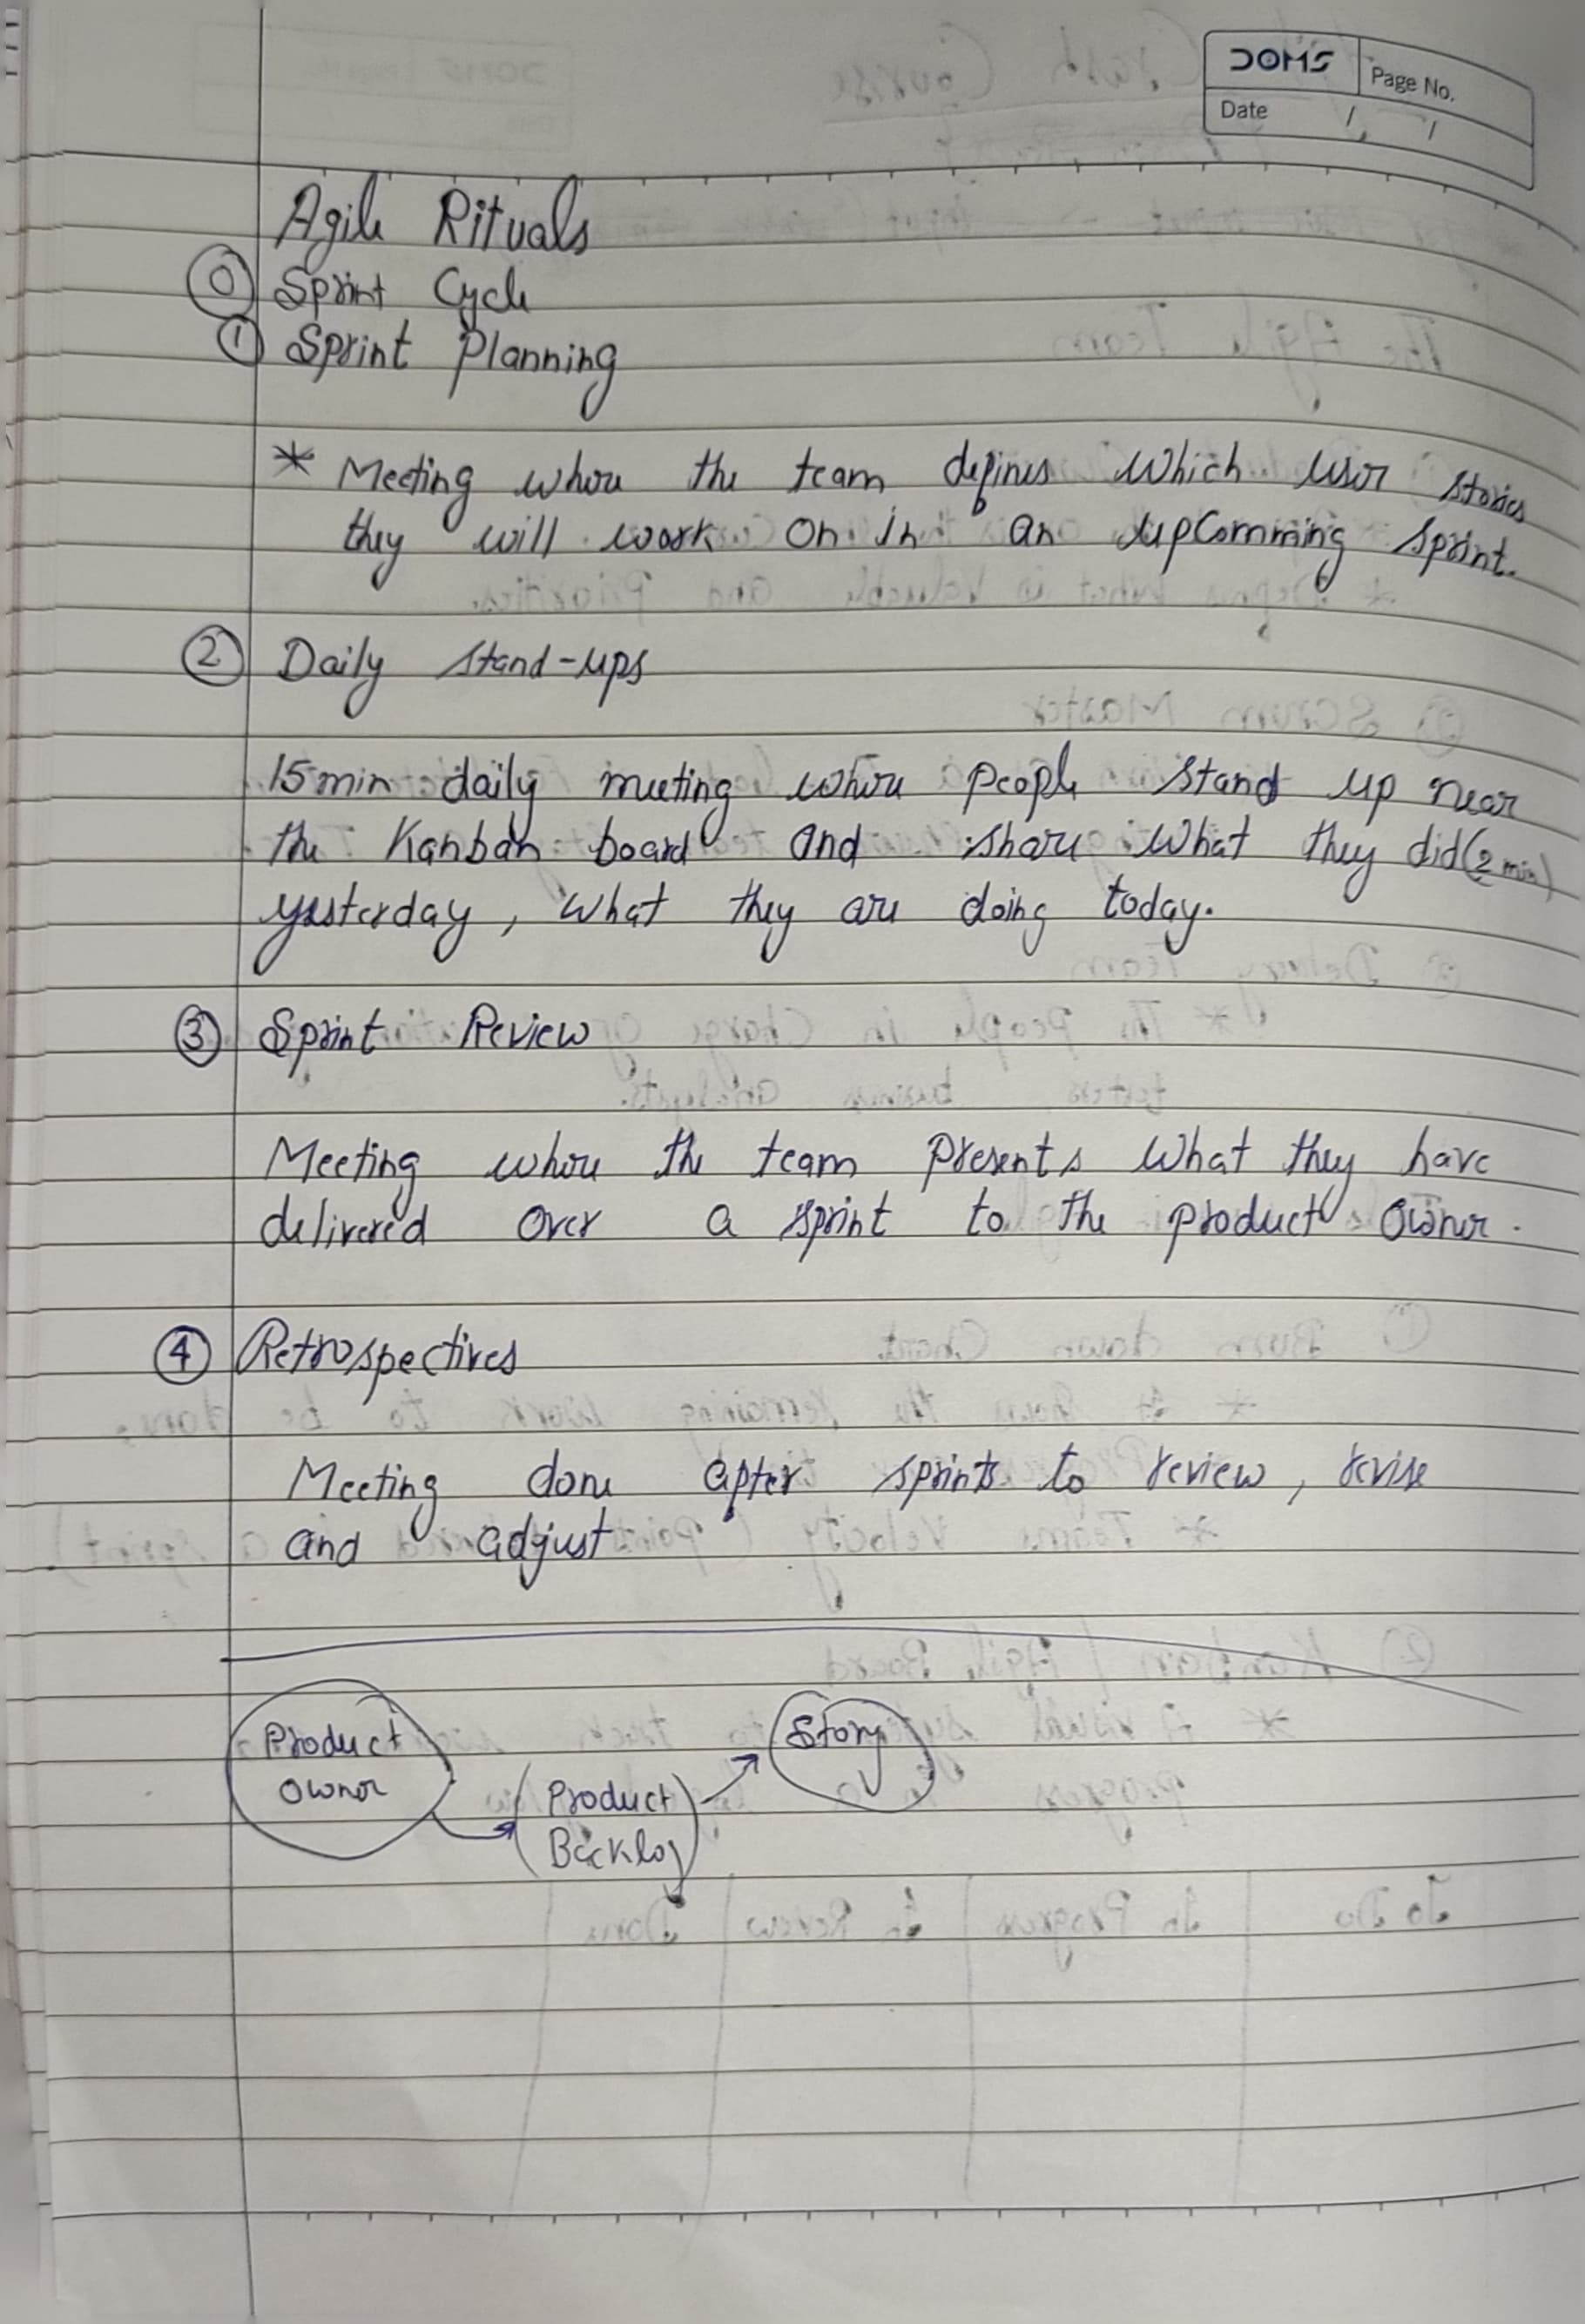 DOMS
Page No.
Date / /
Agile Rituals
0 Sprint Cycle
1 Sprint Planning
* Meeting where the team defines which user stories
they will work on in an upcomming sprint.
2 Daily stand-ups
15 min daily meeting where people stand up near
the Kanban board and share what they did (2 min)
yesterday, what they are doing today.
3 Sprint Review
Meeting where the team presents what they have
delivered over a sprint to the product owner.
4 Retrospectives
Meeting done after sprints to review, revise
and adjust
Product
Owner
Product
Backlog
Story